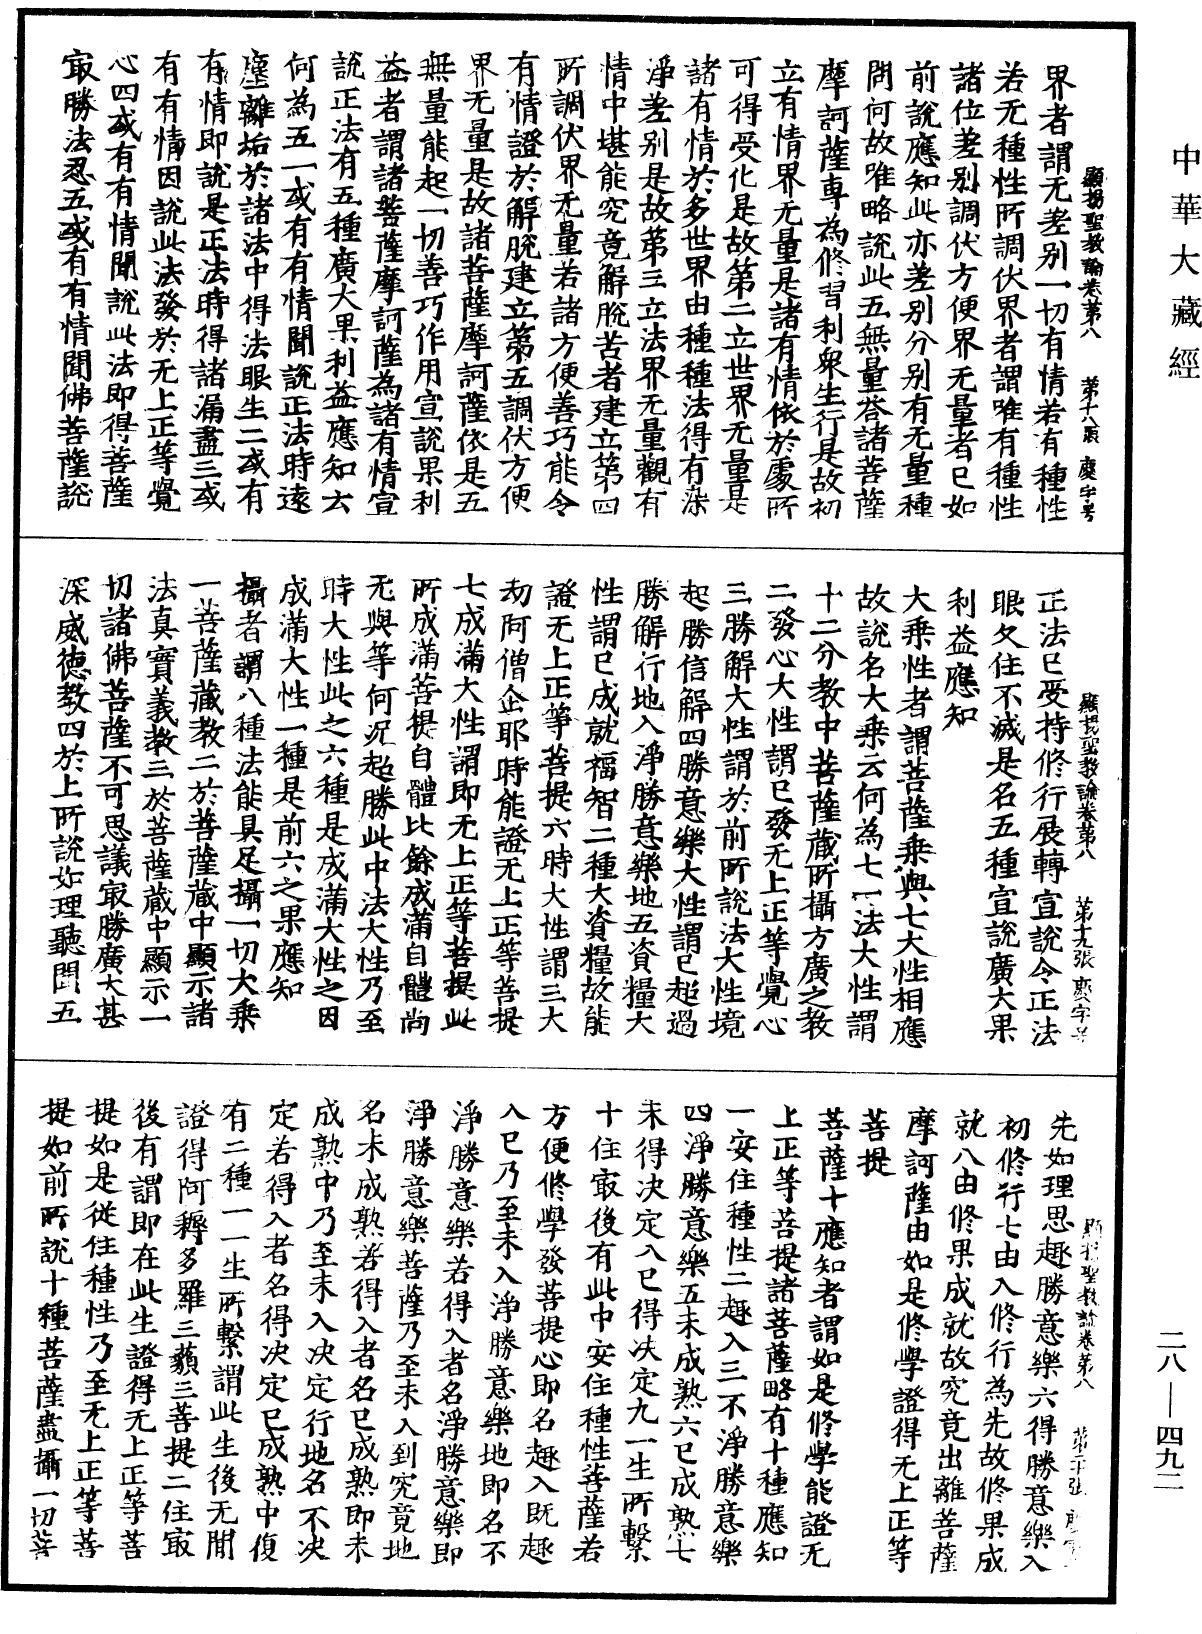 中華大藏經
顯揚聖教論卷第八　第十八張　慶字号
界者謂无差别一切有情若有種性
若无種性所調伏界者謂唯有種性
諸位差别調伏方便界无量者已如
前說應知此亦差别分别有无量種
問何故唯略說此五無量荅諸菩薩
摩訶薩專為修習利衆生行是故初
立有情界无量是諸有情依於處所
可得受化是故第二立世界无量是
諸有情於多世界由種種法得有染
淨差别是故第三立法界无量觀有
情中堪能究竟解脫苦者建立第四
所調伏界无量若諸方便善巧能令
有情證於解脫建立第五調伏方便
界无量是故諸菩薩摩訶薩依是五
無量能起一切善巧作用宣說果利
益者謂諸菩薩摩訶薩為諸有情宣
說正法有五種廣大果利益應知云
何為五一或有有情聞說正法時遠
塵離垢於諸法中得法眼生二或有
有情即說是正法時得諸漏盡三或
有有情因說此法發於无上正等覺
心四或有有情聞說此法即得菩薩
㝡勝法忍五或有有情聞佛菩薩說
顯揚聖教論卷第八　第十九張　慶字号
正法已受持修行展轉宣說令正法
眼久住不滅是名五種宣說廣大果
利益應知
大乘性者謂菩薩乘與七大性相應
故說名大乘云何為七一法大性謂
十二分教中菩薩藏所攝方廣之教
二發心大性謂已發无上正等覺心
三勝解大性謂於前所說法大性境
起勝信解四勝意樂大性謂已超過
勝解行地入淨勝意樂地五資糧大
性謂已成就福智二種大資糧故能
證无上正等菩提六時大性謂三大
刧阿僧企耶時能證无上正等菩提
七成滿大性謂即无上正等菩提此
所成滿菩提自體比餘成滿自體尚
无與等何況超勝此中法大性乃至
時大性此之六種是成滿大性之因
成滿大性一種是前六之果應知
攝者謂八種法能具足攝一切大乘
一菩薩藏教二於菩薩藏中顯示諸
法真實義教三於菩薩藏中顯示一
切諸佛菩薩不可思議㝡勝廣大甚
深威德教四於上所說如理聽聞五
顯揚聖教論卷第八　第二十張
先如理思趣勝意樂六得勝意樂入
初修行七由入修行為先故修果成
就八由修果成就故究竟出離菩薩
摩訶薩由如是修學證得无上正等
菩提
菩薩十應知者謂如是修學能證无
上正等菩提諸菩薩略有十種應知
一安住種性二趣入三不淨勝意樂
四淨勝意樂五未成熟六已成熟七
未得决定八已得决定九一生所繫
十住㝡後有此中安住種性菩薩若
方便修學發菩提心即名趣入既趣
入已乃至未入淨勝意樂地即名不
淨勝意樂若得入者名淨勝意樂即
淨勝意樂菩薩乃至未入到究竟地
名未成熟若得入者名已成熟即未
成熟中乃至未入决定行地名不决
定若得入者名得决定已成熟中復
有二種一一生所繫謂此生後无閒
證得阿耨多羅三藐三菩提二住㝡
後有謂即在此生證得无上正等菩
提如是從住種性乃至无上正等菩
提如前所說十種菩薩盡攝一切菩
二八—四九二